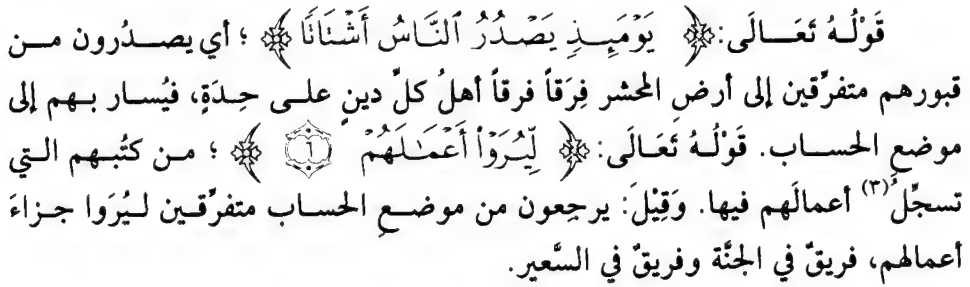 قَوْلُهُ تَعَالَى: ﴿ يَوْمَئِذٍ يَصْدُرُ ٱلنَّاسُ أَشْتَاتًا ﴾ ؛ أي يصدُرون من
قبورهم متفرِّقين إلى أرضِ المحشر فِرَقاً فرقاً أهلُ كلِّ دينٍ على حِدَةٍ، فيُسار بهم إلى
موضع الحساب. قَوْلُهُ تَعَالَى: ﴿ لِّيُرَوْا۟ أَعْمَٰلَهُمْ ٦ ﴾ ؛ من كتُبهم التي
تسجِّلُ(٣) أعمالَهم فيها. وَقِيْلَ: يرجِعون من موضعِ الحساب متفرِّقين ليُرَوا جزاءَ
أعمالهم، فريقٌ في الجنَّة وفريقٌ في السَّعير.